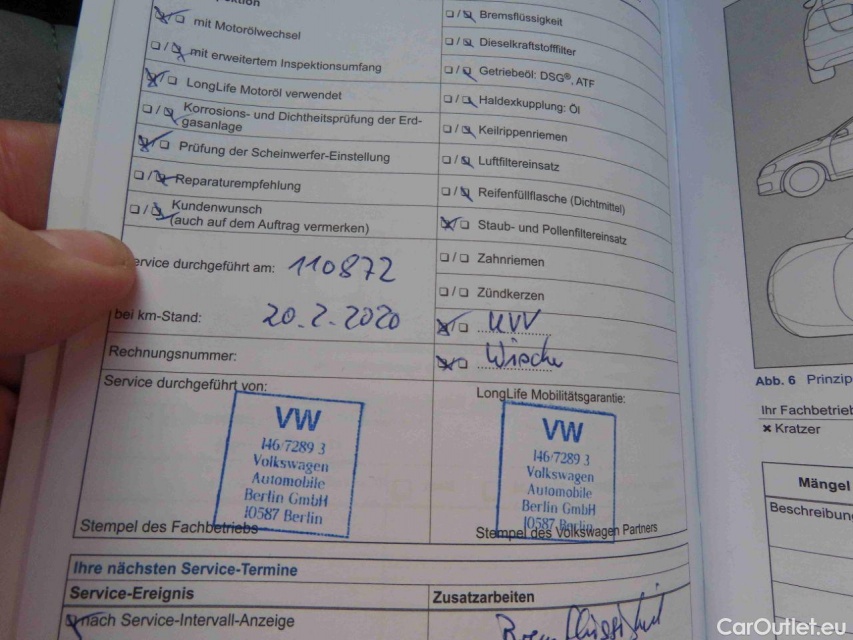 mit Motorölwechsel
mit erweitertem Inspektionsumfang
LongLife Motoröl verwendet
Korrosions- und Dichtheitsprüfung der Erd-
gasanlage
Prüfung der Scheinwerfer-Einstellung
Reparaturempfehlung
Kundenwunsch
(auch auf dem Auftrag vermerken)
ervice durchgeführt am: 110872
bei km-Stand: 20.2.2020
Rechnungsnummer:
Service durchgeführt von:
VW
146/7289 3
Volkswagen
Automobile
Berlin GmbH
10587 Berlin
Stempel des Fachbetriebs
Bremsflüssigkeit
Dieselkraftstofffilter
Getriebeöl: DSG®, ATF
Haldexkupplung: Öl
Keilrippenriemen
Luftfiltereinsatz
Reifenfüllflasche (Dichtmittel)
Staub- und Pollenfiltereinsatz
Zahnriemen
Zündkerzen
Wische
LongLife Mobilitätsgarantie:
VW
146/7289 3
Volkswagen
Automobile
Berlin GmbH
10587 Berlin
Stempel des Volkswagen Partners
Ihre nächsten Service-Termine
Service-Ereignis
Zusatzarbeiten
nach Service-Intervall-Anzeige
Abb. 6 Prinzip
Ihr Fachbetrieb
× Kratzer
Mängel
Beschreibung
CarOutlet.eu